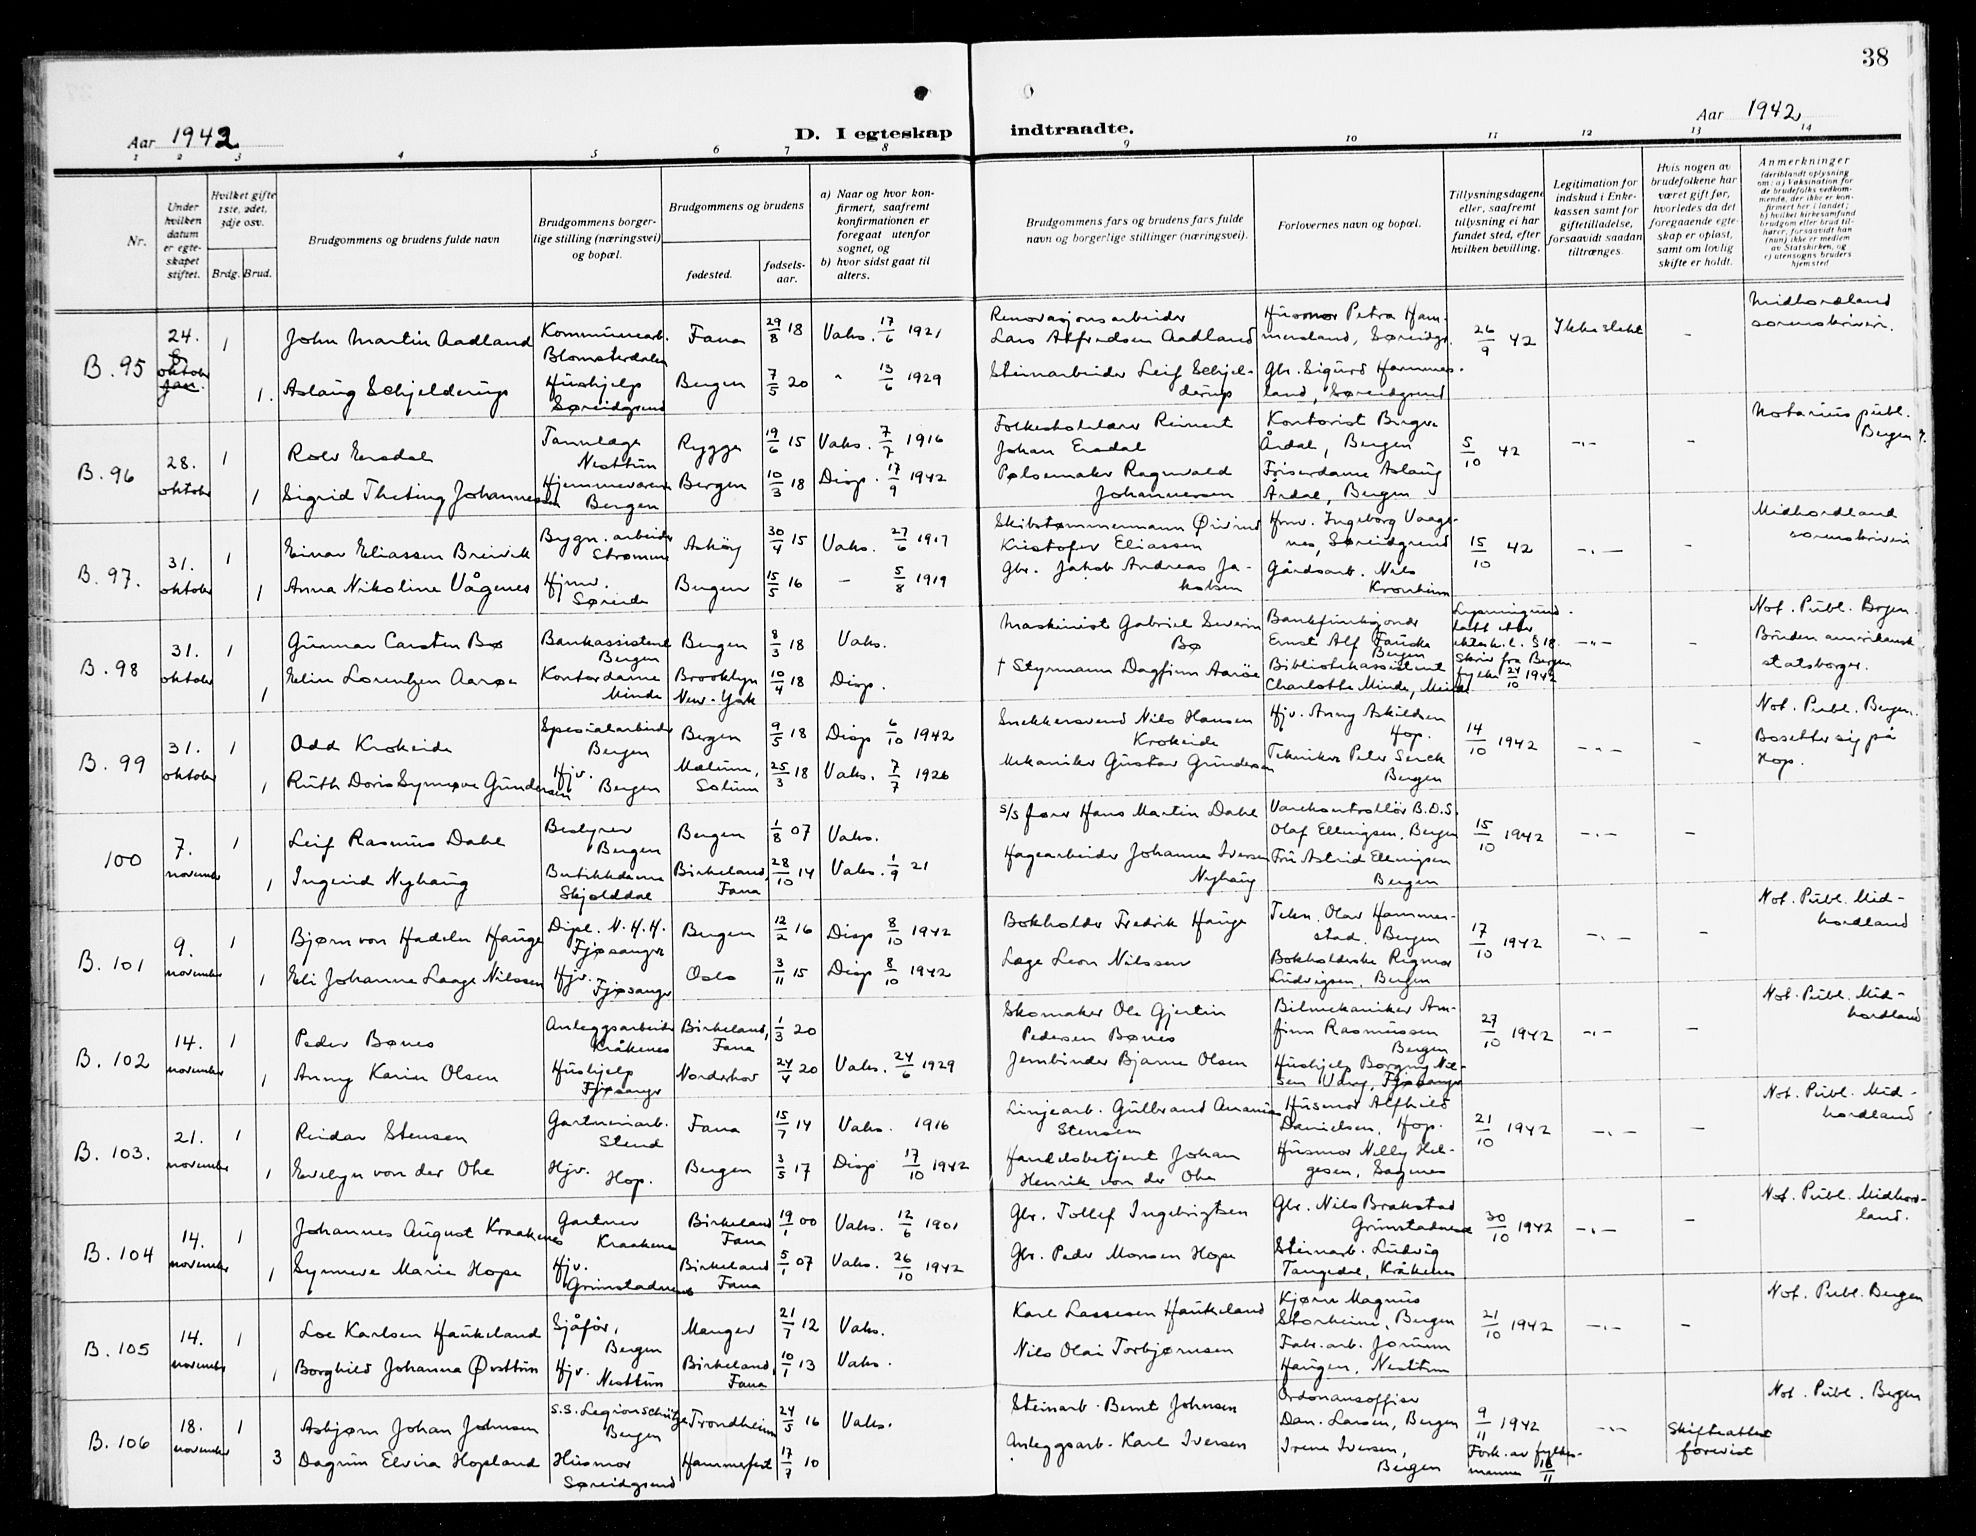 38
Aar 1942
D. I egteskap
indtraadte.
Aar 1942
1 2 3 4 5 6 7 8 9 10 11 12 13 14
Nr.
Under hvilken datum er egteskapet stiftet.
Hvilket gifte 1ste, 2det, 3dje osv.
Brdg. Brud.
Brudgommens og brudens fulde navn
Brudgommens borgerlige stilling (næringsvei) og bopæl.
Brudgommens og brudens
fødested.
fødselsaar.
a) Naar og hvor konfirmert, saafremt konfirmationen er foregaat utenfor sognet, og
b) hvor sidst gaat til alters.
Brudgommens fars og brudens fars fulde navn og borgerlige stillinger (næringsvei).
Forlovernes navn og bopæl.
Tillysningsdagene eller, saafremt tillysning ei har fundet sted, efter hvilken bevilling.
Legitimation for indskud i Enkekassen samt for giftetilladelse, forsaavidt saadan tiltrænges.
Hvis nogen av brudefolkene har været gift før, hvorledes da det foregaaende egteskap er opløst, samt om lovlig skifte er holdt.
Anmerkninger (deriblandt oplysning om: a) Vaksination for de brudefolks vedkommende, der ikke er konfirmert her i landet; b) hvilket kirkesamfund brudgom eller brud tilhører, forsaavidt han (hun) ikke er medlem av Statskirken, og c) utensogns bruders hjemsted
B. 95 24. oktober 1 John Martin Aadland Kommunearb. Blomsterdalen Fana 29/8 18 Vaks. 17/6 1921 Renovasjonsarbeider Lars Alfredsen Aadland Husmor Petra Hammersland, Søreidgr. 26/9 42 Ikke slekt - Midhordland sorenskriveri.
1. Aslaug Schjelderup Hushjelp Søreidgrend Bergen 7/5 20 " 13/6 1929 Steinarbeider Leif Schjelderup Gbr. Sigurd Hammersland, Søreidgrend
B. 96 28. oktober 1 Rolv Ersdal Tannlege Nesttun Rygge 19/6 15 Vaks. 7/7 1916 Folkeskolelærer Reinert Johan Ersdal Kontorist Birger Årdal, Bergen 5/10 42 -"- - Notarius publ. Bergen
1 Sigrid Theting Johannessen Hjemmeværende Bergen Bergen 10/3 18 Disp. 17/9 1942 Pølsemaker Ragnvald Johannessen Friserdame Aslaug Årdal, Bergen
B. 97. 31. oktober 1 Einar Eliassen Breivik Bygn. arbeider Strømme Askøy 30/4 15 Vaks. 27/6 1917 Skibstømmermann Øivind Kristofer Eliassen Hmv. Ingeborg Vaagenes, Søreidgrend 15/10 42 -"- - Midhordland sorenskriveri
1 Anna Nikoline Vågenes Hjmv. Søreide Bergen 15/5 16 - 5/8 1919 Gbr. Jakob Andreas Jakobsen Gårdsarb. Nils Kronheim
B. 98 31. oktober 1 Gunnar Carsten Bø Bankassistent Bergen Bergen 8/3 18 Vaks. Maskinist Gabriel Severin Bø Bankfunksjonær Ernst Alf Fauske Bergen ekteskl. § 18. Skriv fra Bergen fylke 24/10 1942 -"- - Not. Publ. Brgen. Bruden amerikansk statsborger.
1 Elin Lorentzen Aarøe Kontordame Minde Brooklyn New-York 10/4 18 Disp. † Styrmann Dagfinn Aarøe Bibliotekassistent Charlotte Minde, Minde
B. 99 31. oktober 1 Odd Krokeide Spesialarbeider Bergen Bergen 9/5 18 Disp 6/10 1942 Snekkersvend Nils Hansen Krokeide Hjv. Anny Askildsen Hop. 14/10 1942 -"- - Not. Publ. Bergen. Bosetter sig på Hop.
1 Ruth Doris Synnøve Gundersen Hjv. Bergen Mælum, Solum 25/3 18 Vaks. 7/7 1926 Mekaniker Gustav Gundersen Tekniker Peter Serck Bergen
100 7. november 1 Leif Rasmus Dahl Bestyrer Bergen Bergen 1/8 07 Vaks. s/s fører Hans Martin Dahl Varekontrollør B.D.S. Olaf Ellingsen, Bergen 15/10 1942 -"- -
1 Ingerid Nyhaug Butikkdame Skjolddal Birkeland, Fana 28/10 14 Vaks. 1/9 21 Hagearbeider Johannes Iversen Nyhaug Fru Astrid Ellingsen Bergen
B. 101 9. november 1 Bjørn von Hadeln Hauge Dipl. N.H.H. Fjøsanger Bergen 12/2 16 Disp 8/10 1942 Bokholder Fredrik Hauge Tekn. Olav Hammerstad, Bergen 17/10 1942 -"- - Not. Publ. Midhordland
1 Eli Johanne Laage Nilssen Hjv. Fjøsanger Oslo 3/11 15 Disp 8/10 1942 Læge Leon Nilssen Bokholderske Rigmor Ludvigsen, Bergen
B. 102 14. november 1 Peder Bønes Anleggsarbeider Kråkenes Birkeland, Fana 1/3 20 Skomaker Ole Gjertin Pedersen Bønes Bilmekaniker Arnfinn Rasmussen Bergen 27/10 1942 -"- - Not. Publ. Midhordland
1 Anny Karin Olsen Hushjelp Fjøsanger Norderhov 24/4 20 Vaks. 24/6 1929 Jernbinder Bjarne Olsen Hushjelp Borgny Nilsen Fjøsanger
B. 103. 21. november 1 Reidar Stensen Gartneriarb. Stend Fana 15/7 14 Vaks. 1916 Linjearb. Gulbrand Ananias Stensen Husmor Alfhild Danielsen, Hop. 21/10 1942 -"- - Not. Publ. Midhordland
1 Evelyn von der Ohe Hjv. Hop. Bergen 3/5 17 Disp 17/10 1942 Handelsbetjent Johan Henrik von der Ohe Husmor Nelly Helgesen, Sagenes
B. 104 14. november 1 Johannes August Kraakenes Gartner Kraakenes Birkeland Fana 19/1 00 Vaks. 12/6 1901 Gbr. Tollef Ingebrigtsen Gbr. Nils Brakstad Grimstadnes 30/10 1942 -"- - Not. Publ. Midhordland.
1 Synneve Marie Hope Hjv. Grimstadnes Birkeland Fana 5/1 07 Vaks. 26/10 1942 Gbr. Peder Monsen Hope Steinarb. Ludvig Tangedal, Kråkenes
B. 105 14. november 1 Loe Karlsen Haukeland Sjåfør, Bergen Manger 21/7 12 Vaks. Karl Lassesen Haukeland Kjøpm Magnus Storheim, Bergen 21/10 1942 -"- - Not. Publ. Bergen
1 Borghild Johanna Øvsttun Hjv. Nesttun Birkeland, Fana 10/1 13 Vaks. Nils Olai Torbjørnsen Fabr. arb. Jorunn Haugen, Nesttun
B. 106 18. november 1 Asbjørn Johan Johnsen S.S. Legionschütze Bergen Trondheim 24/5 16 Vaks. Steinarb. Bernt Johnsen Ordonansoffiser Dan. Larsen, Bergen 9/11 1942 Fork. av fylkesmannen 16/11 -"- Skifteattest forevist Not. Publ. Bergen
3 Dagrun Elvira Hopland Husmor Søreidgrend Hammerfest 17/7 10 Anleggsarb. Karl Iversen Irene Iversen, Bergen